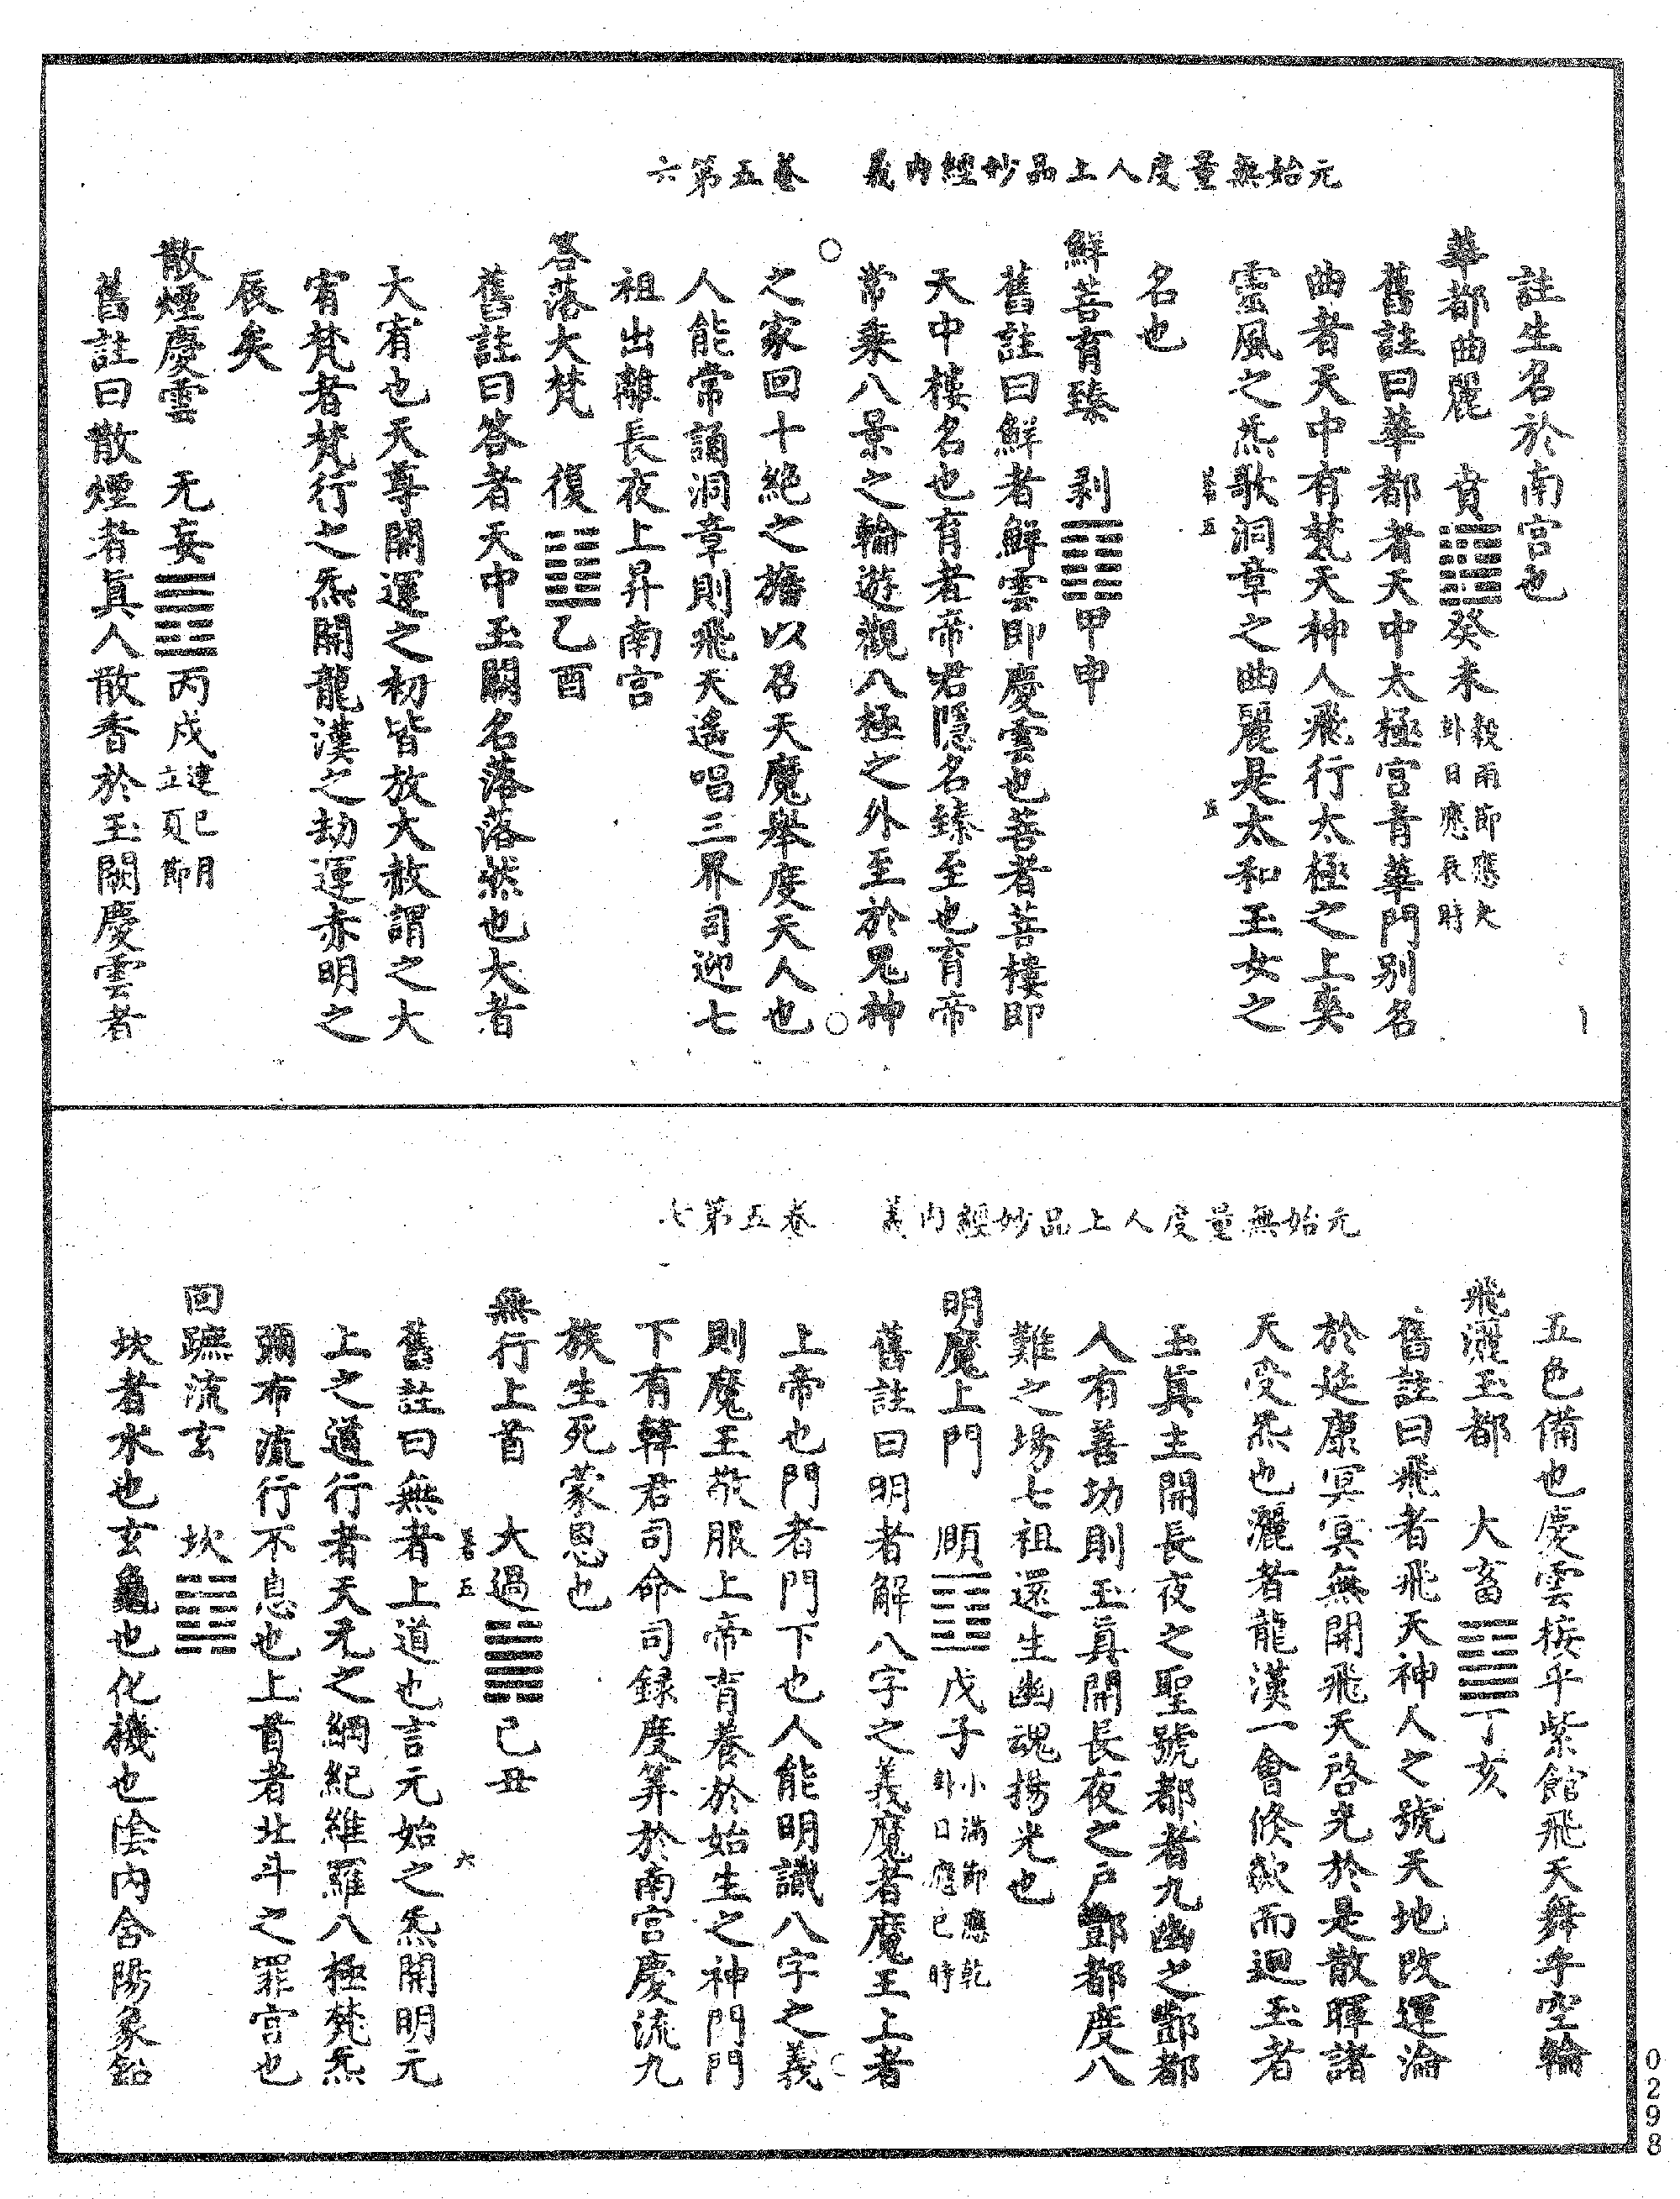 元始無量度人上品妙經內義　卷五第六
註生名於南宮也
華都曲麗　賁䷕癸未穀雨節應大卦日應辰時
舊註曰華都者天中太極宮青華門別名
曲者天中有梵天神人飛行太極之上奚
雲風之炁歌洞章之曲麗是太和玉女之
名也
鮮菩育臻　剥䷖甲申
舊註曰鮮者鮮雲即慶雲也菩者菩樓即
天中樓名也育者帝君隱名臻至也育帝
常乘八景之輪遊觀八極之外至於鬼神
之家回十絶之旛以召天魔舉度天人也
人能常誦洞章則飛天遙唱三界司迎七
祖出離長夜上昇南宮
答落大梵　復䷗乙酉
舊註曰答者天中玉闕名落落然也大者
大宥也天尊開運之初皆放大赦謂之大
宥梵者梵行之炁開龍漢之劫運赤明之
辰矣
散煙慶雲　无妄䷘丙戌建巳月立夏節
舊註曰散煙者真人散香於玉闕慶雲者
元始無量度人上品妙經內義　卷五第七
五色備也慶雲㨪乎紫館飛天舞乎空輪
飛灑玉都　大畜䷙丁亥
舊註曰飛者飛天神人之號天地改運淪
於延康冥冥無開飛天啓光於是散暉諸
天受炁也灑者龍漢一會倏欻而迴玉者
玉真主開長夜之聖號都者九幽之酆都
人有善功則玉真開長夜之戶酆都度八
難之場七祖還生幽魂揚光也
明魔上門　頤䷚戊子小滿節應乾卦日應巳時
舊註曰明者解八字之義魔者魔王上者
上帝也門者門下也人能明識八字之義
則魔王敬服上帝育養於始生之神門門
下有韓君司命司録度筭於南宮慶流九
族生死蒙恩也
無行上首　大過䷛己丑
舊註曰無者上道也言元始之炁開明元
上之道行者天元之綱紀維羅八極梵炁
彌布流行不息也上首者北斗之罪宮也
回蹠流玄　坎䷜
坎者水也玄龜也化機也陰內含陽象鉛
0298